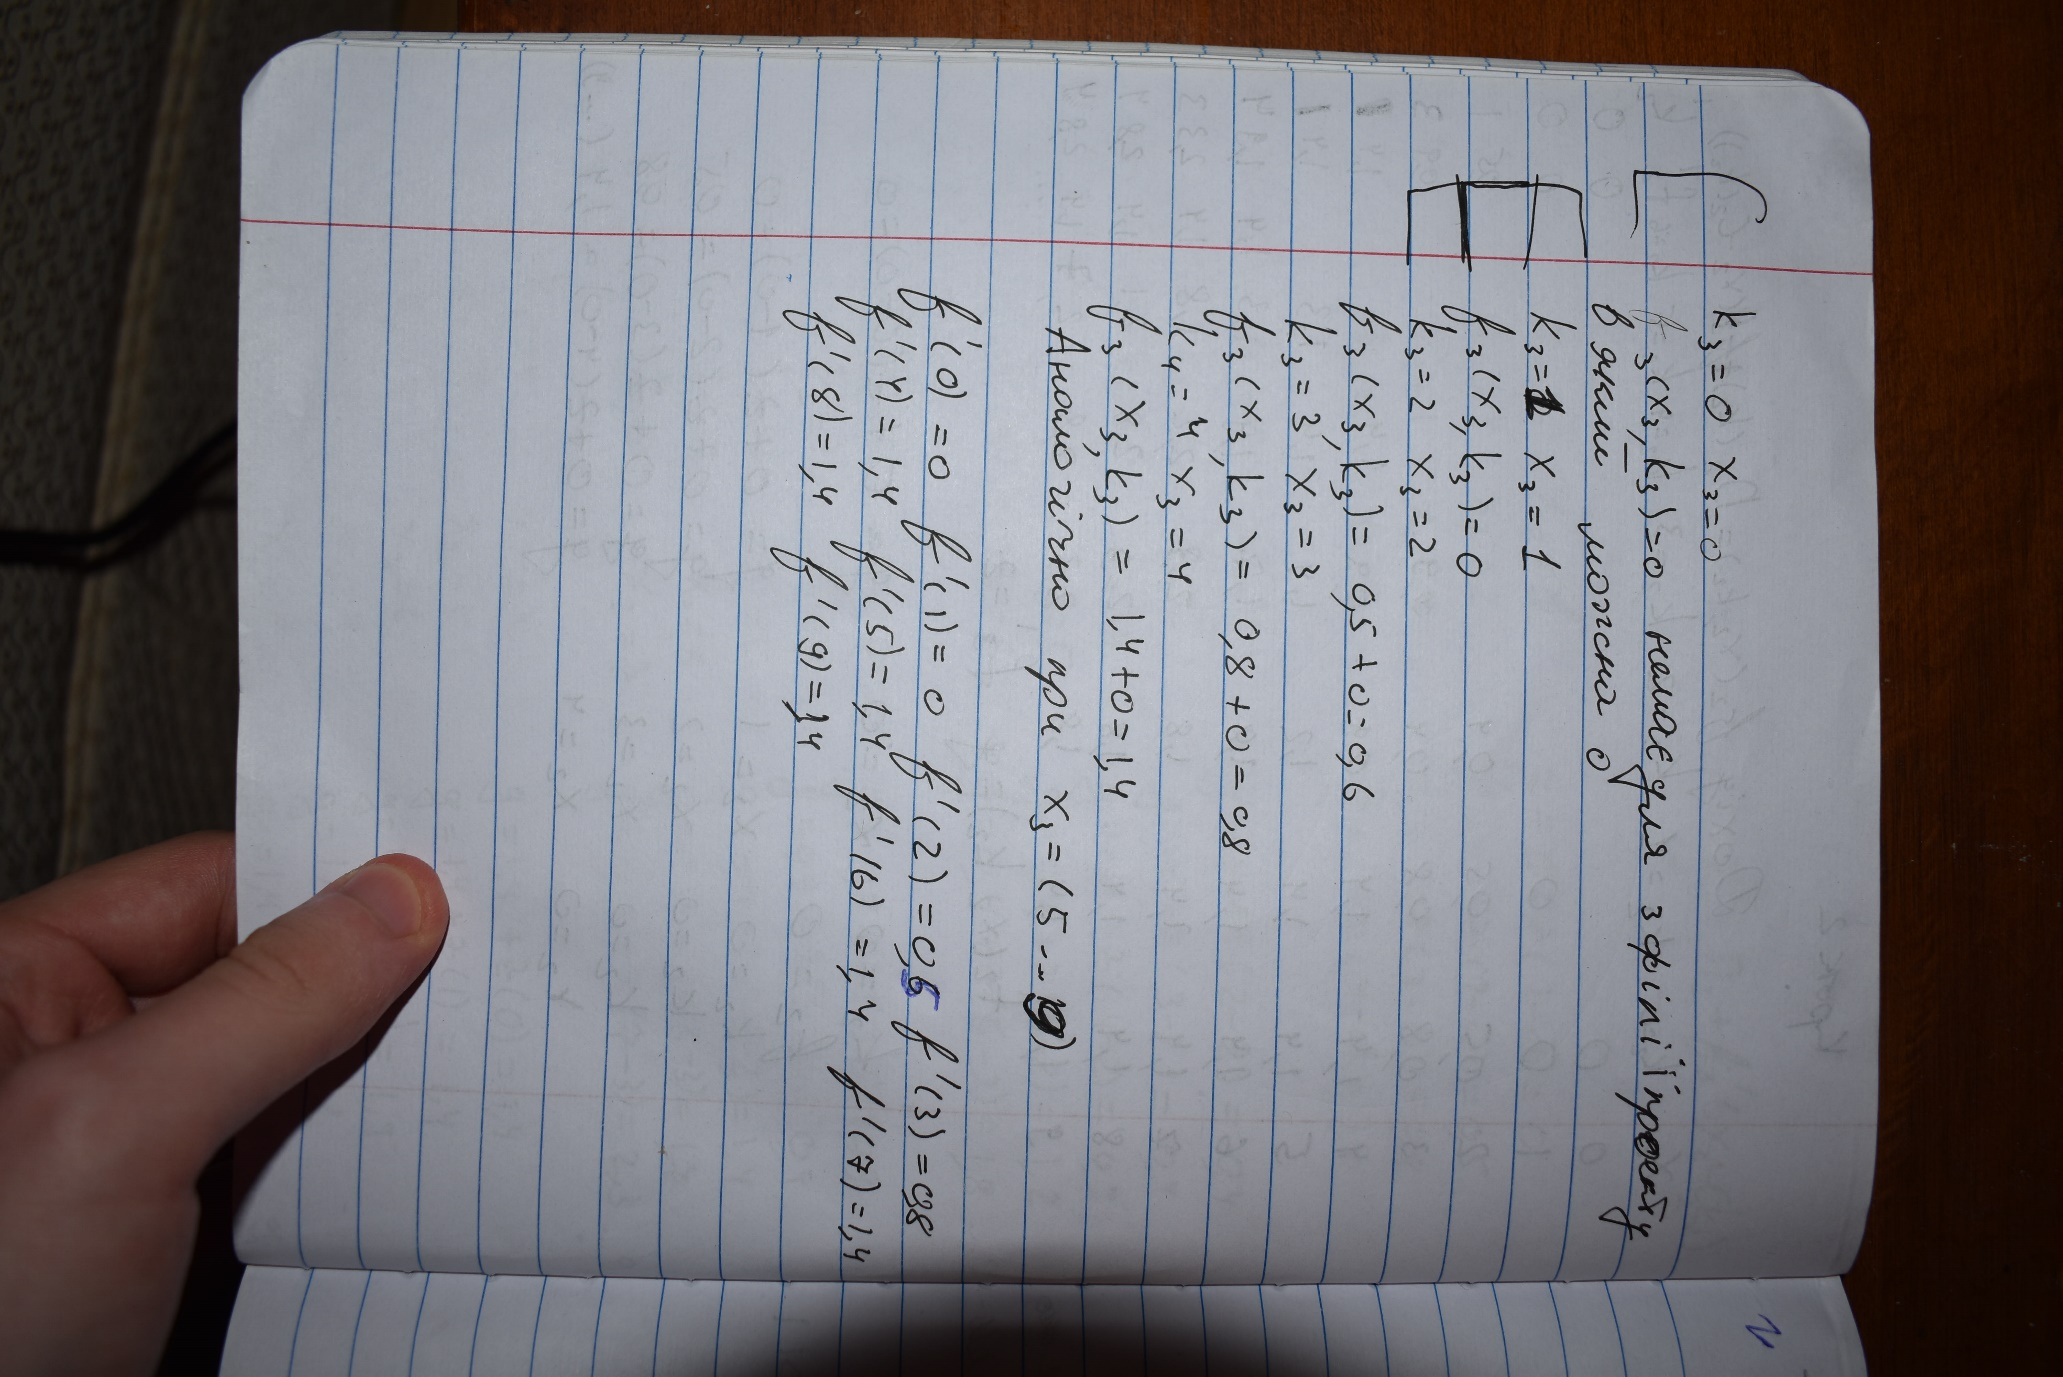 k₃=0 x₃=0
f₃(x₃,k₃)=0 немає для з фірмі проекту
в яким можна 0
k₃=1 x₃=1
f₃(x₃,k₃)=0
k₃=2 x₃=2
f₃(x₃,k₃)= 0,5+0=0,6
k₃=3 x₃=3
f₃(x₃,k₃)= 0,8+0=0,8
k₄=4 x₃=4
f₃(x₃,k₃) = 1,4+0=1,4
Аналогічно при x₃=(5...9)
f'(0)=0 f'(1)=0 f'(2)=0,5 f'(3)=0,8
f'(4)=1,4 f'(5)=1,4 f'(6)=1,4 f'(7)=1,4
f'(8)=1,4 f'(9)=1,4